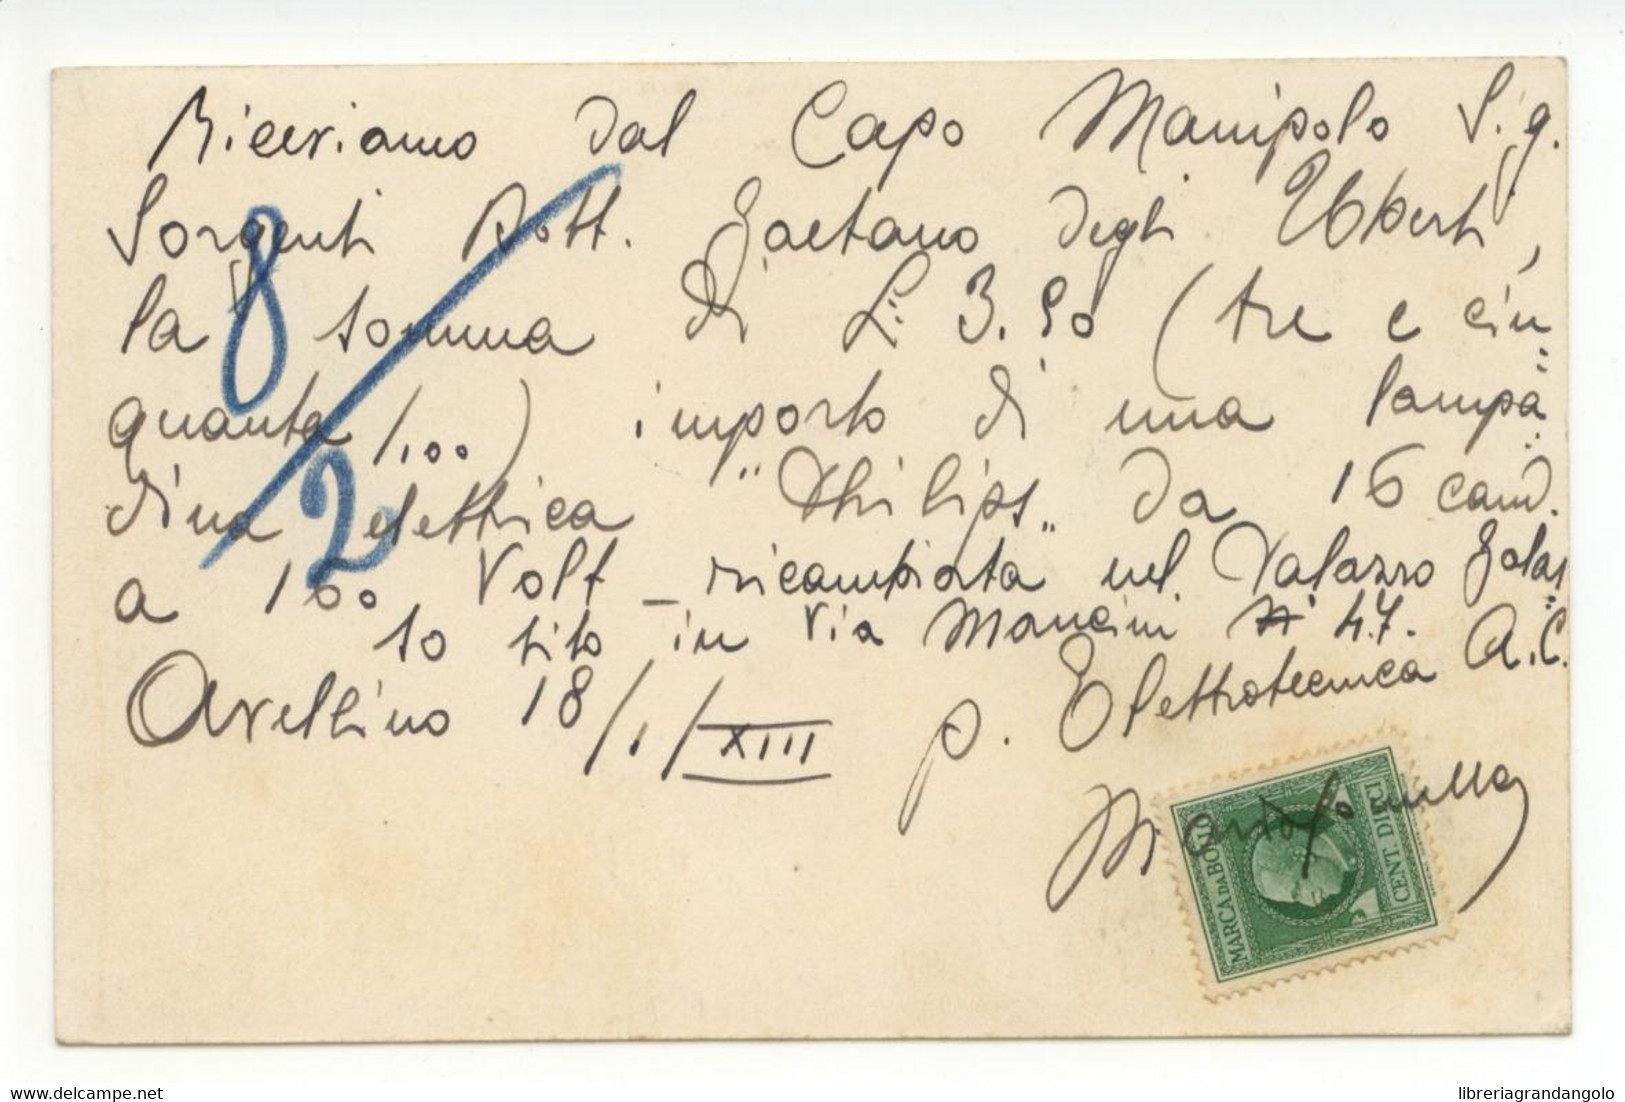 Riceviamo dal Capo Manipolo Sig.
Sorgenti Dott. Gaetano degli Uberti,
la somma di L. 3.50 (tre e cin=
quanta/100) importo di una lampa=
dina elettrica "Philips" da 16 cand.
a 160 Volt _ ricambiata nel Palazzo Galas=
so sito in Via Mancini N° 47.
Avellino 18/1/XIII p. Elettrotecnica A.C.
8/2
MARCA DA BOLLO
CENT. DIECI
www.delcampe.net
libreriagrandangolo